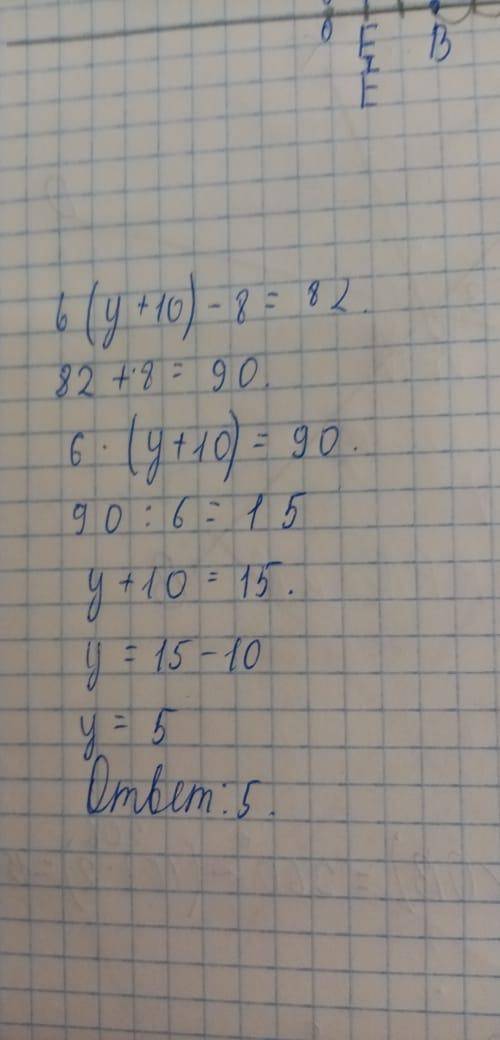 E
B
E
6 (y + 10) - 8 = 82.
82 + 8 = 90.
6 · (y + 10) = 90.
90 : 6 = 15
y + 10 = 15.
y = 15 - 10
y = 5
Ответ: 5.